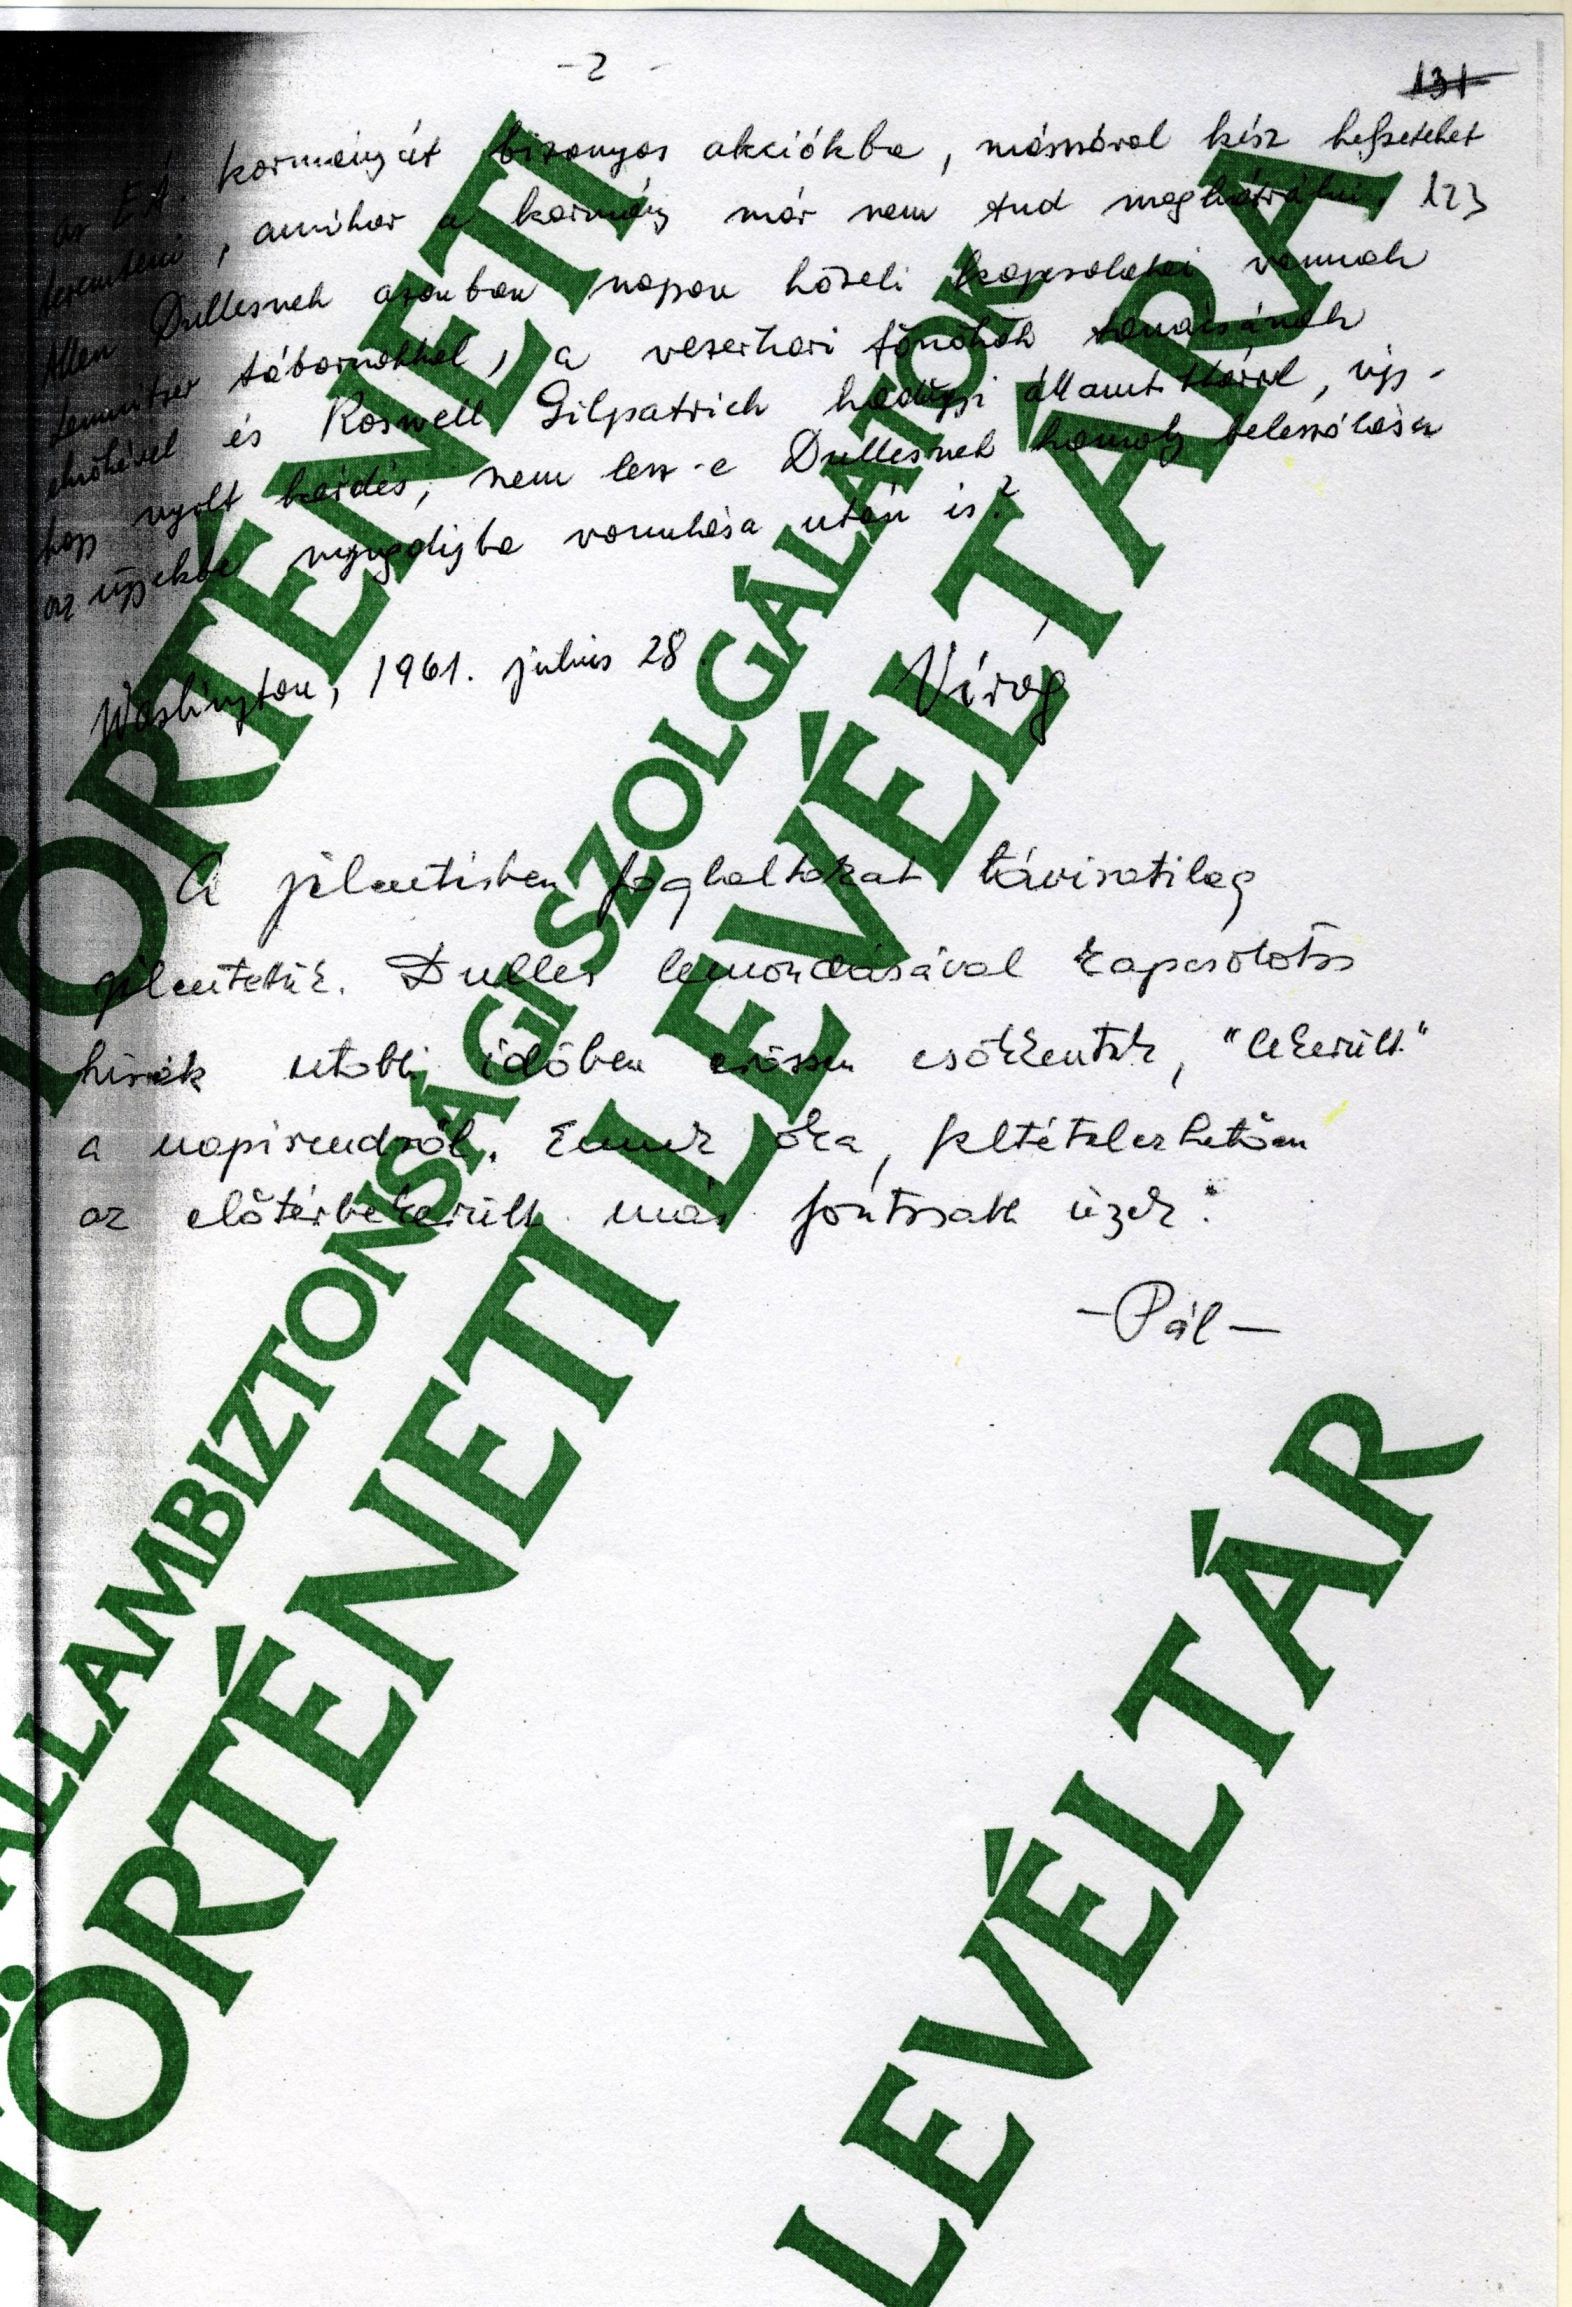 - 2 -
131
az EÁ. kormányát bizonyos akciókba, másszóval kész helyzeteket
teremteni, amikor a kormány már nem tud meghátrálni. 123
Allen Dullesnek azonban napon közeli kapcsolatai vannak
Lemnitzer tábornokkal, a vezérkari főnökök tanácsának
elnökével és Roswell Gilpatrick hadügyi államtitkárral, úgy-
hogy nyolt kérdés, nem lesz-e Dullesnek komoly beleszólása
az ügyekbe nyugdijba vonulása után is?
Washington, 1961. julius 28.
Virág
A jelentésben foglaltakat táviratilag
jelentettük. Dulles lemondásával kapcsolatos
hirek utóbbi időben erőssen csökkentek, "lekerült"
a napirendről. Ennek oka, feltételezhetően
az előtérbekerült más fontosabb ügyek.
- Pál -
TÖRTÉNETI
ÁLLAMBIZTONSÁGI SZOLGÁLATOK
TÖRTÉNETI LEVÉLTÁRA
LEVÉLTÁR